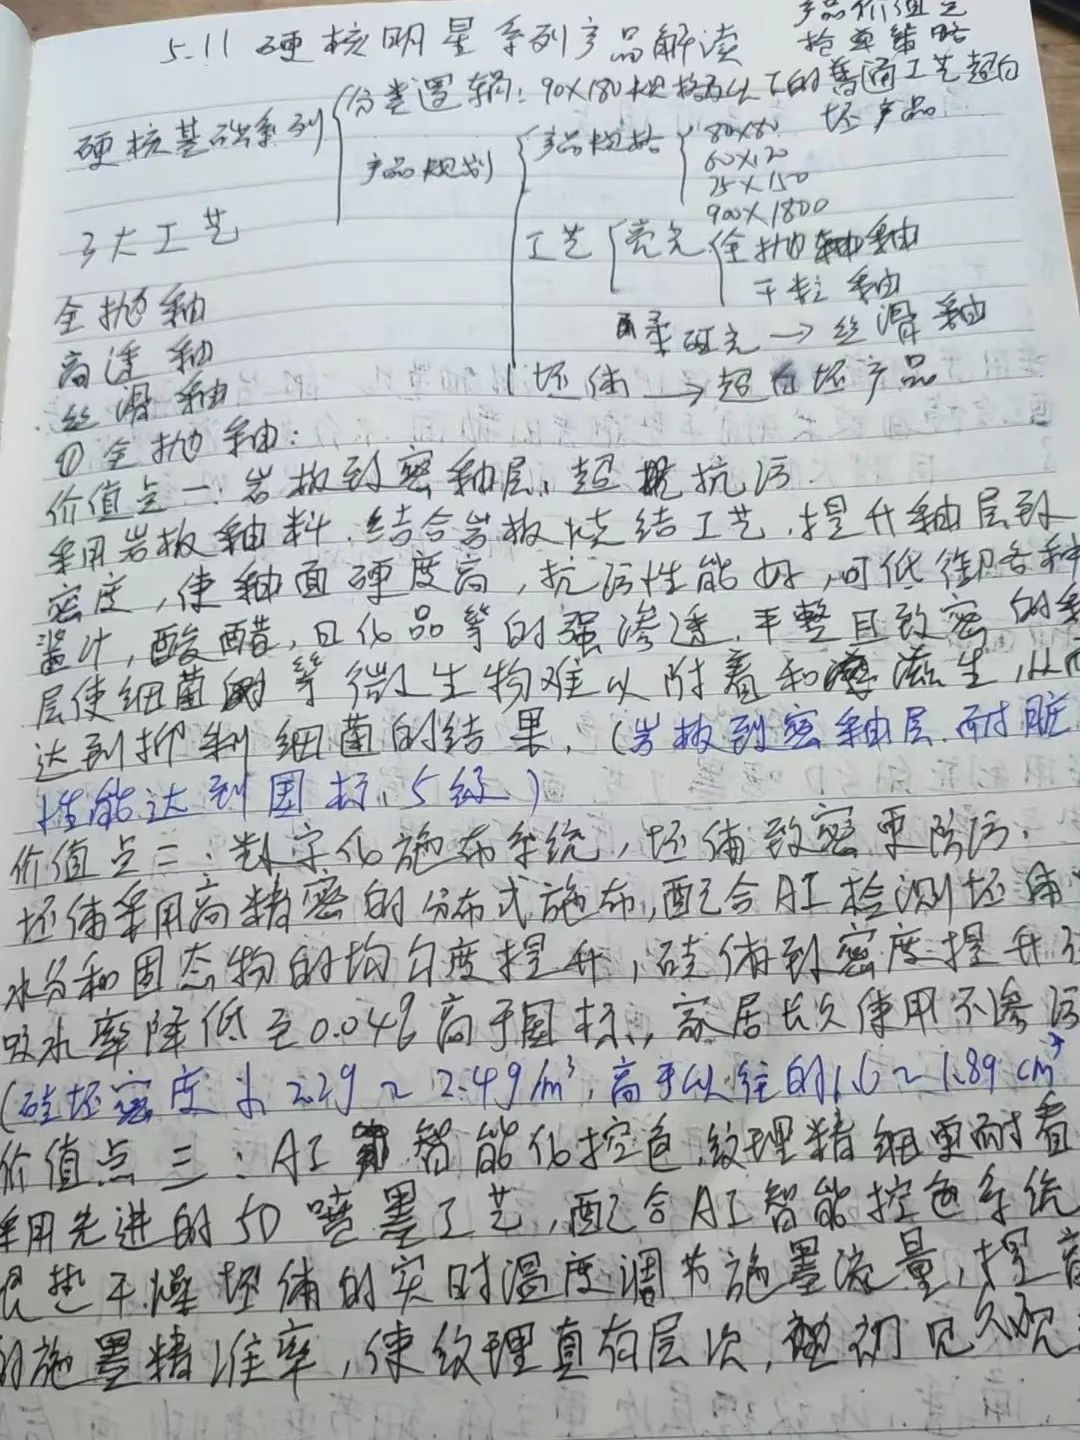 产品价值与
抢单策略
5.11 硬核明星系列产品解读
硬核基础系列
分类逻辑：90×180规格及以下的普通工艺超白
坯产品
产品规划
产品规格
80×80
60×120
75×150
900×1800
3大工艺
工艺
亮光
全抛釉
干粒釉
全抛釉
高透釉
柔哑光→丝滑釉
丝滑釉
坯体→超白坯产品
①全抛釉：
价值点一：岩板到密釉层，超抗污
采用岩板釉料，结合岩板烧结工艺，提升釉层到
密度，使釉面硬度高，抗污性能好，可低御各种
酱汁，酸醋，日化品等的强渗透，平整且致密的釉
层使细菌等微生物难以附着和滋生，从而
达到抑制细菌的结果，（岩板到密釉层，耐脏
性能达到国标，5级）
价值点二：数字化施布系统，坯体致密更防污，
坯体采用高精密的分布式施布，配合AI检测坯体
水分和固态物的均匀度提升，砖体到密度提升
吸水率降低至0.04%高于国标，家居长久使用不渗污
（砖坯密度为2.2g～2.4g/m³，高于以往的1.6～1.8g cm³
价值点三：AI智能化控色，纹理精细更耐看
采用先进的5D喷墨工艺，配合AI智能控色系统
干燥坯体的实时温度调节施墨流量，提高
的施墨精准率，使纹理真有层次，初见久观